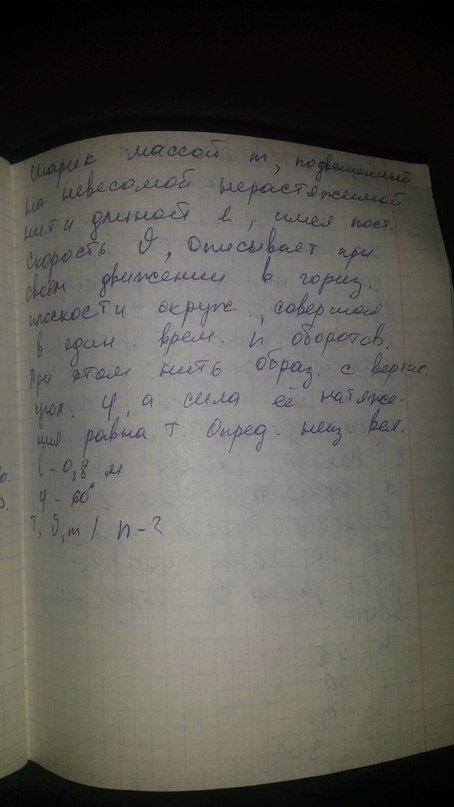 шарик массой m, подвешенный
на невесомой нерастяжимой
нити длиной l, имея пост.
скорость υ, описывает при
своем движении в гориз.
плоскости окруж., совершая
в един. врем. n оборотов.
При этом нить образ. с вертик.
угол φ, а сила её натяже-
ния равна T. Опред. неиз. вел.
l - 0,8 м
φ - 60°
T, υ, m / n - ?